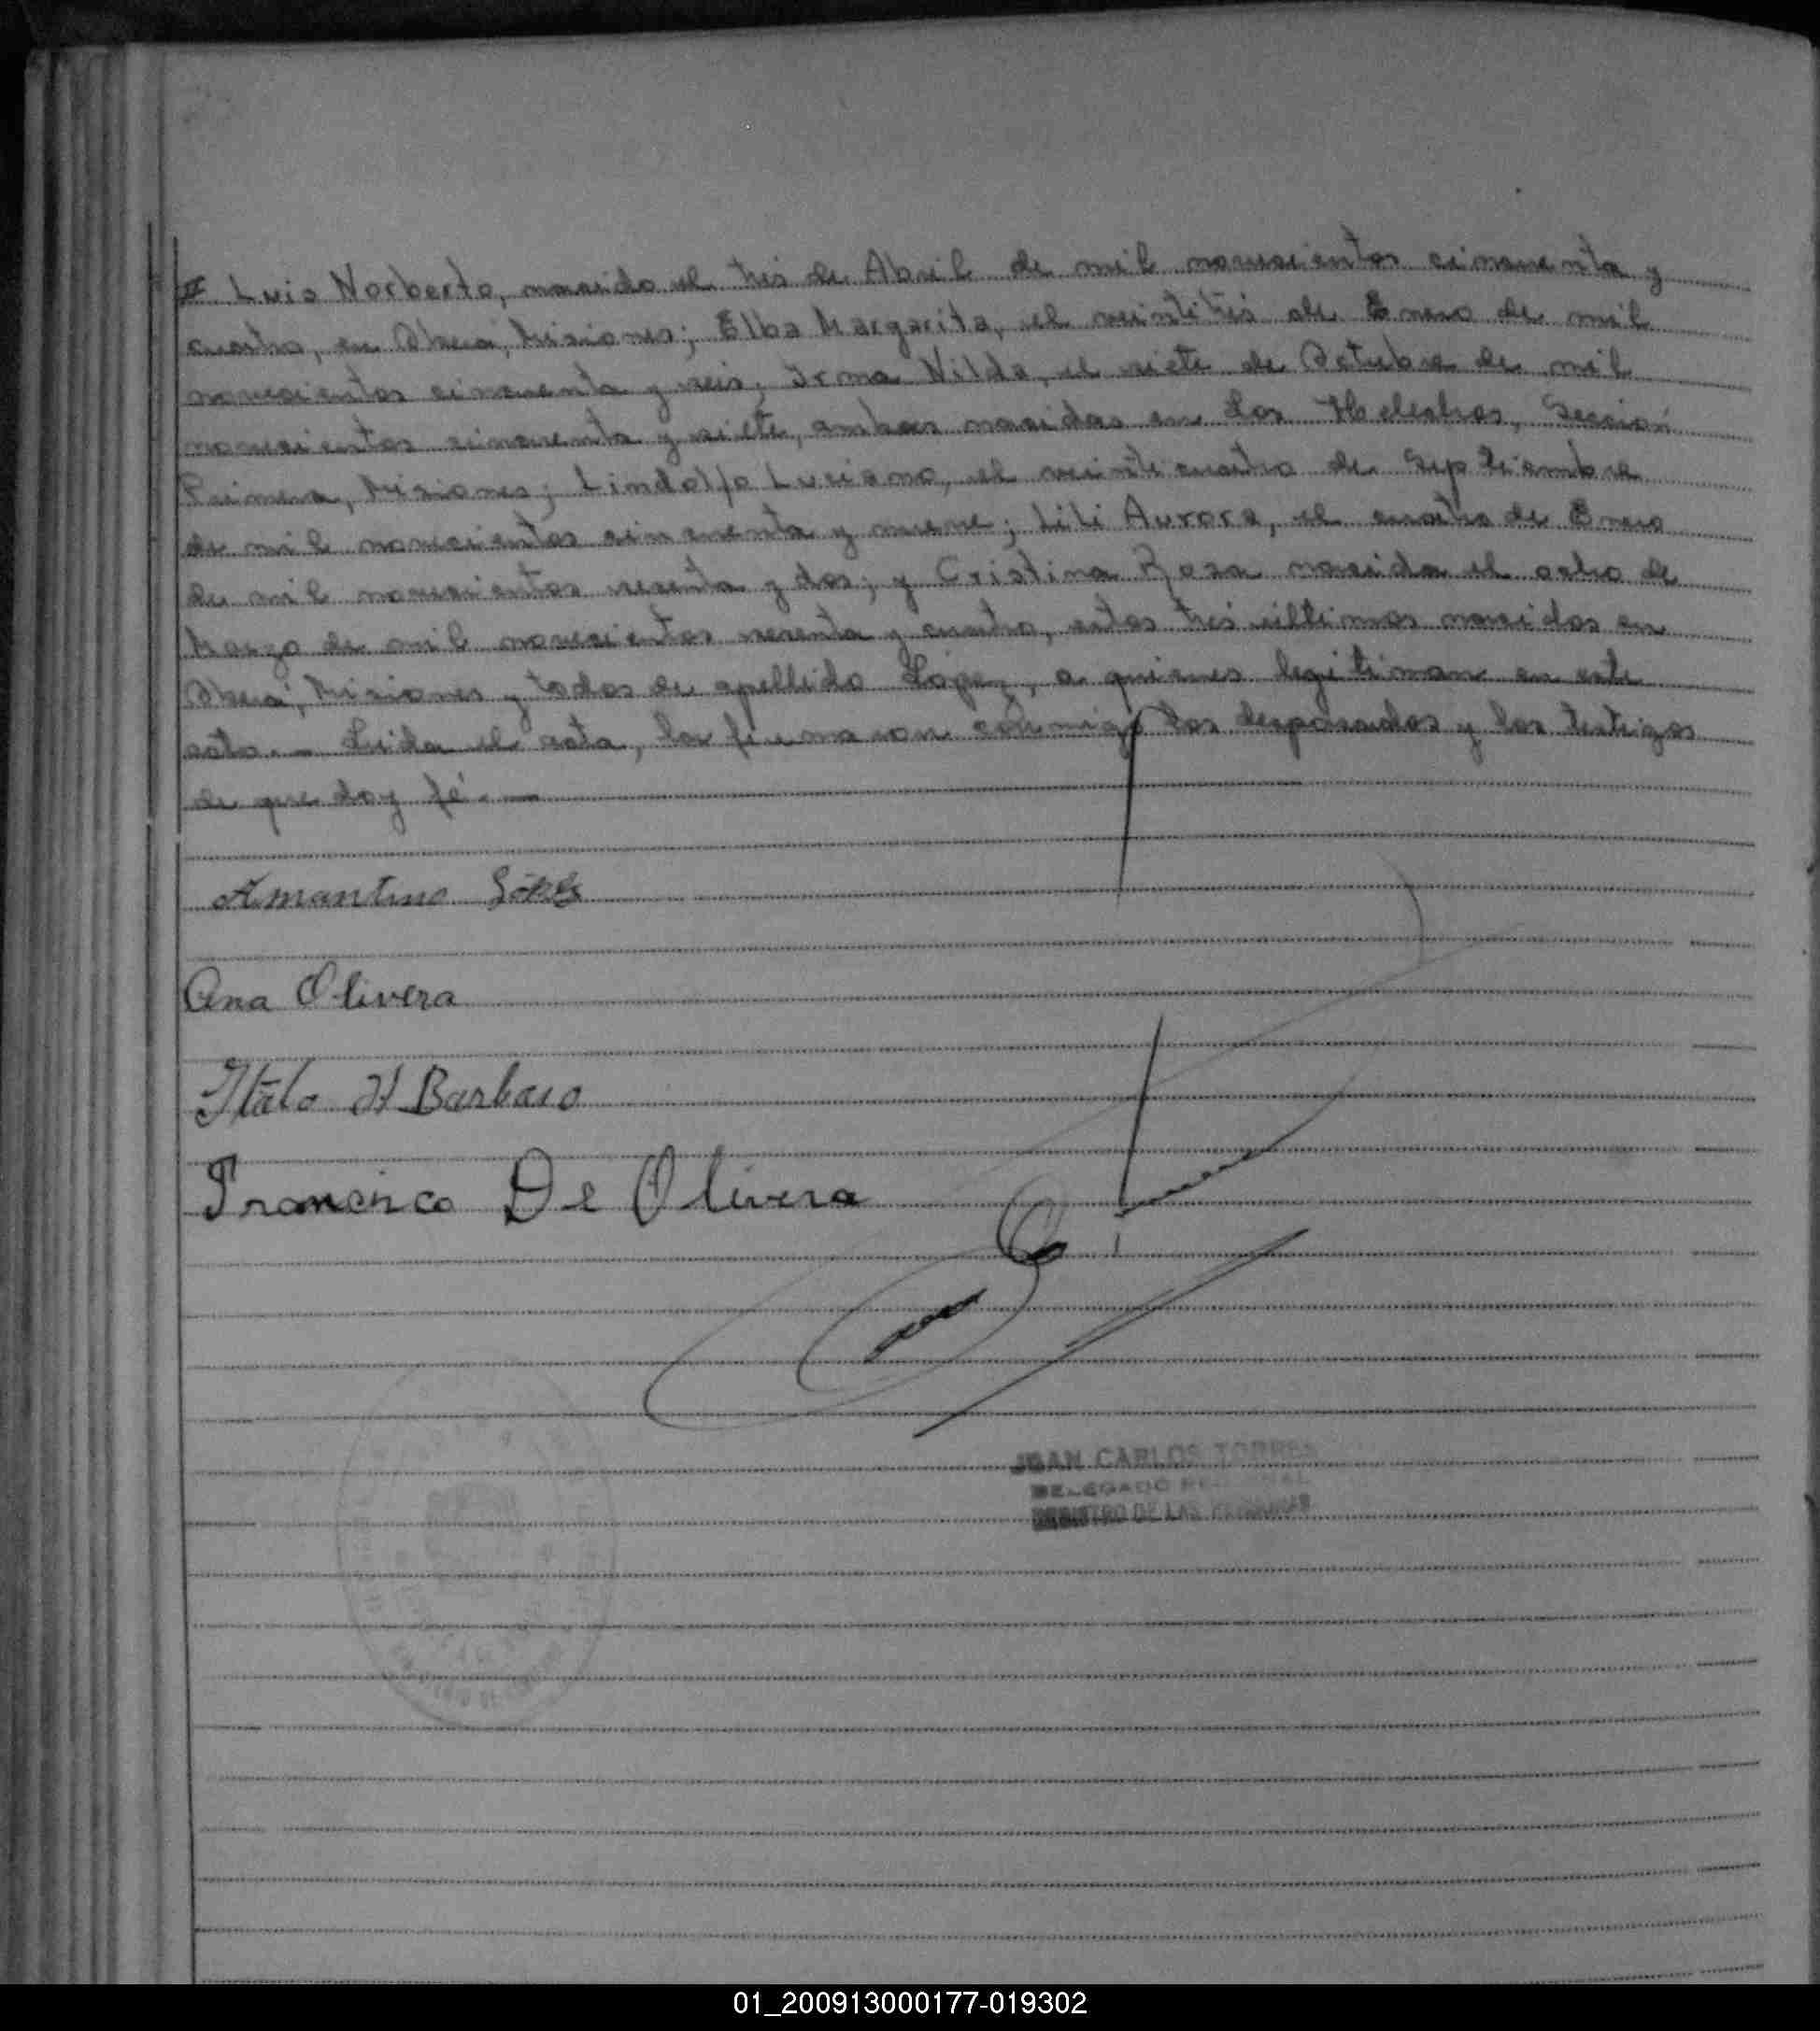 Luis Norberto, nacido el tres de Abril de mil novecientos cincuenta y
cuatro, en Oberá, Misiones; Elba Margarita, el veintitrés de Enero de mil
novecientos cincuenta y seis; Irma Nilda, el siete de Octubre de mil
novecientos cincuenta y siete, ambas nacidas en Los Helechos, Sección
Primera, Misiones; Lindolfo Luciano, el veinticuatro de Septiembre
de mil novecientos cincuenta y nueve; Lili Aurora, el cuatro de Enero
de mil novecientos sesenta y dos; y Cristina Rosa nacida el ocho de
Marzo de mil novecientos sesenta y cuatro, estos tres últimos nacidos en
Oberá, Misiones y todos de apellido López, a quienes legitiman en este
acto. - Leida el acta, la firmaron conmigo los desposados y los testigos
de que doy fé. -
Amantino López
Ana Olivera
Italo H Barbaro
Francisco De Olivera
JUAN CARLOS TORRES
DELEGADO
REGISTRO DE LAS PERSONAS
01_200913000177-019302